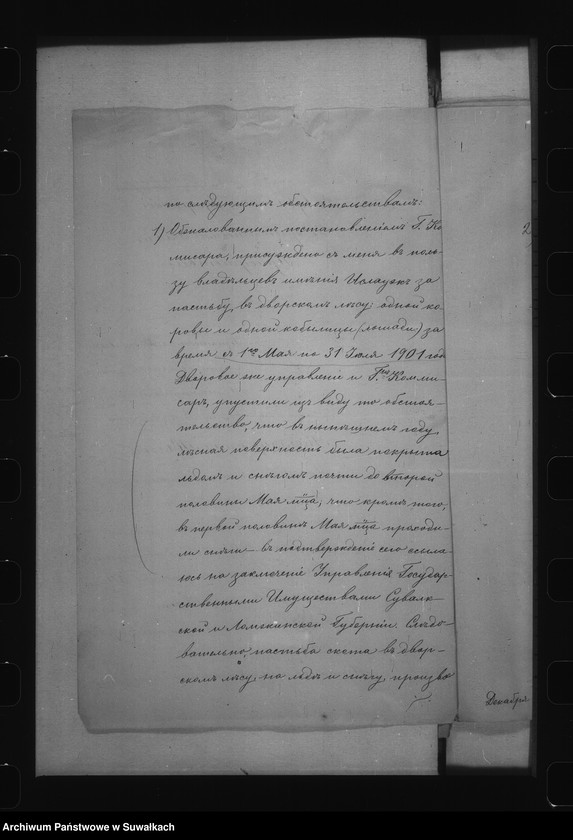 по слѣдующимъ обстоятельствамъ:
1) Обжалованнымъ постановленіемъ Г. Ко
мисара, присуждено съ меня въ поль-
зу владѣльцевъ имѣнія за
пастьбу, въ дворскомъ лѣсу: одной ко-
ровы и одной кобылицы (лошади) за
время съ 1го Мая по 31 Іюля 1901 год
Дворовое же управленіе и Комми
саръ, упустили изъ виду то обстоя-
тельство, что въ нынѣшнемъ году
лѣсная поверхность была покрыта
льдомъ и снѣгомъ почти до второй
половины Мая мца, что кромѣ того,
въ первой половинѣ Мая мца проходи-
ли снѣги – въ подтвержденіе сего ссыла-
юсь на заключеніе Управленія Государ-
ственными Имуществами Сувалк-
ской и Ломжинской Губерніи. Слѣдо-
вательно, пастьба скота въ двор-
скомъ лѣсу, по льдѣ и снѣгу, произво
2
Декабря
Archiwum Państwowe w Suwałkach